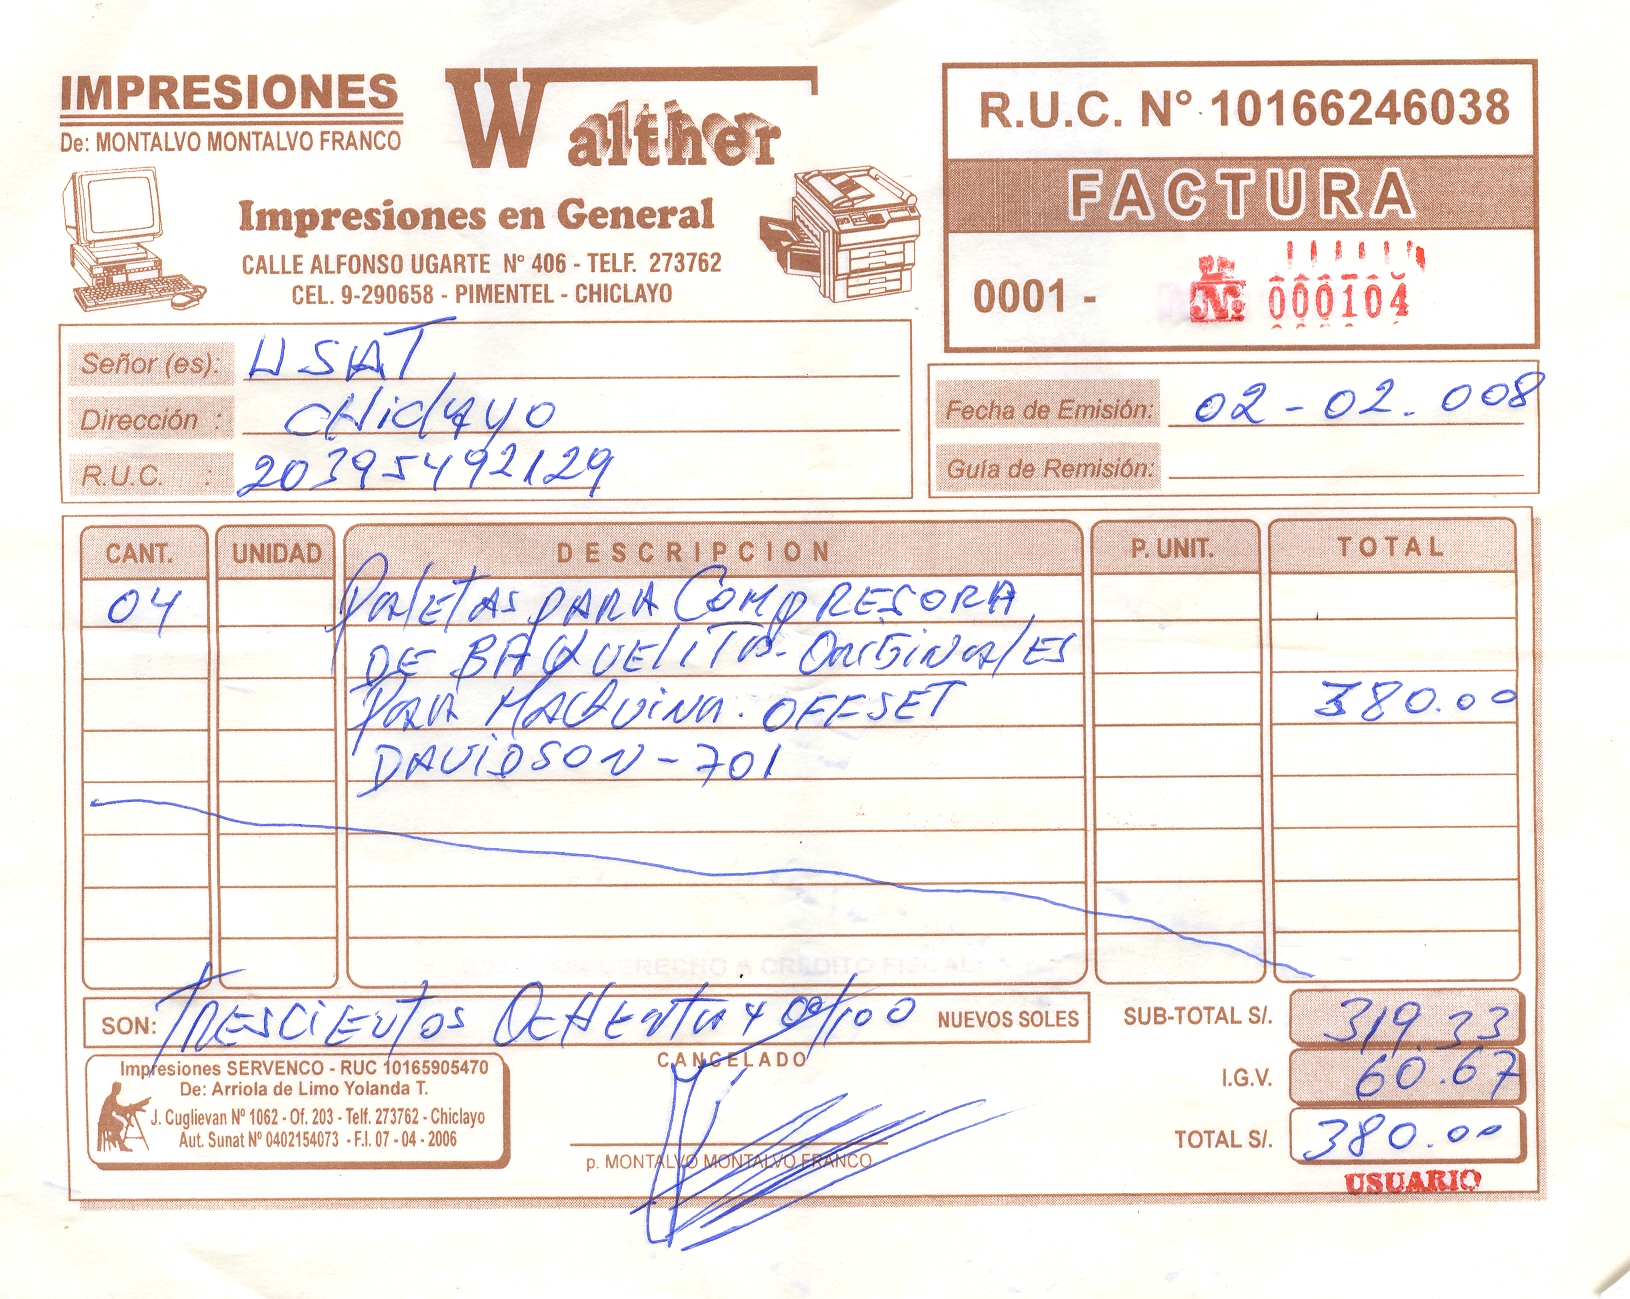 IMPRESIONES
De: MONTALVO MONTALVO FRANCO
Walther
Impresiones en General
CALLE ALFONSO UGARTE N° 406 - TELF. 273762
CEL. 9-290658 - PIMENTEL - CHICLAYO
R.U.C. N° 10166246038
FACTURA
0001 - Nº 000104
Señor (es): USAT
Dirección : CHiclAyo
R.U.C. : 20395492129
Fecha de Emisión: 02-02.008
Guía de Remisión:
CANT. UNIDAD DESCRIPCION P. UNIT. TOTAL
04 PalETAS PARA COMPRESORA
DE BAQUELITA. ORiGiNalES
PARA MAQuiNA. OFFSET 380.00
DAViDSON-701
SON: TRESCIENTOS OCHENTA y 00/100 NUEVOS SOLES
SUB-TOTAL S/. 319.33
I.G.V. 60.67
TOTAL S/. 380.00
Impresiones SERVENCO - RUC 10165905470
De: Arriola de Limo Yolanda T.
J. Cuglievan Nº 1062 - Of. 203 - Telf. 273762 - Chiclayo
Aut. Sunat Nº 0402154073 - F.I. 07 - 04 - 2006
CANCELADO
p. MONTALVO MONTALVO FRANCO
USUARIO